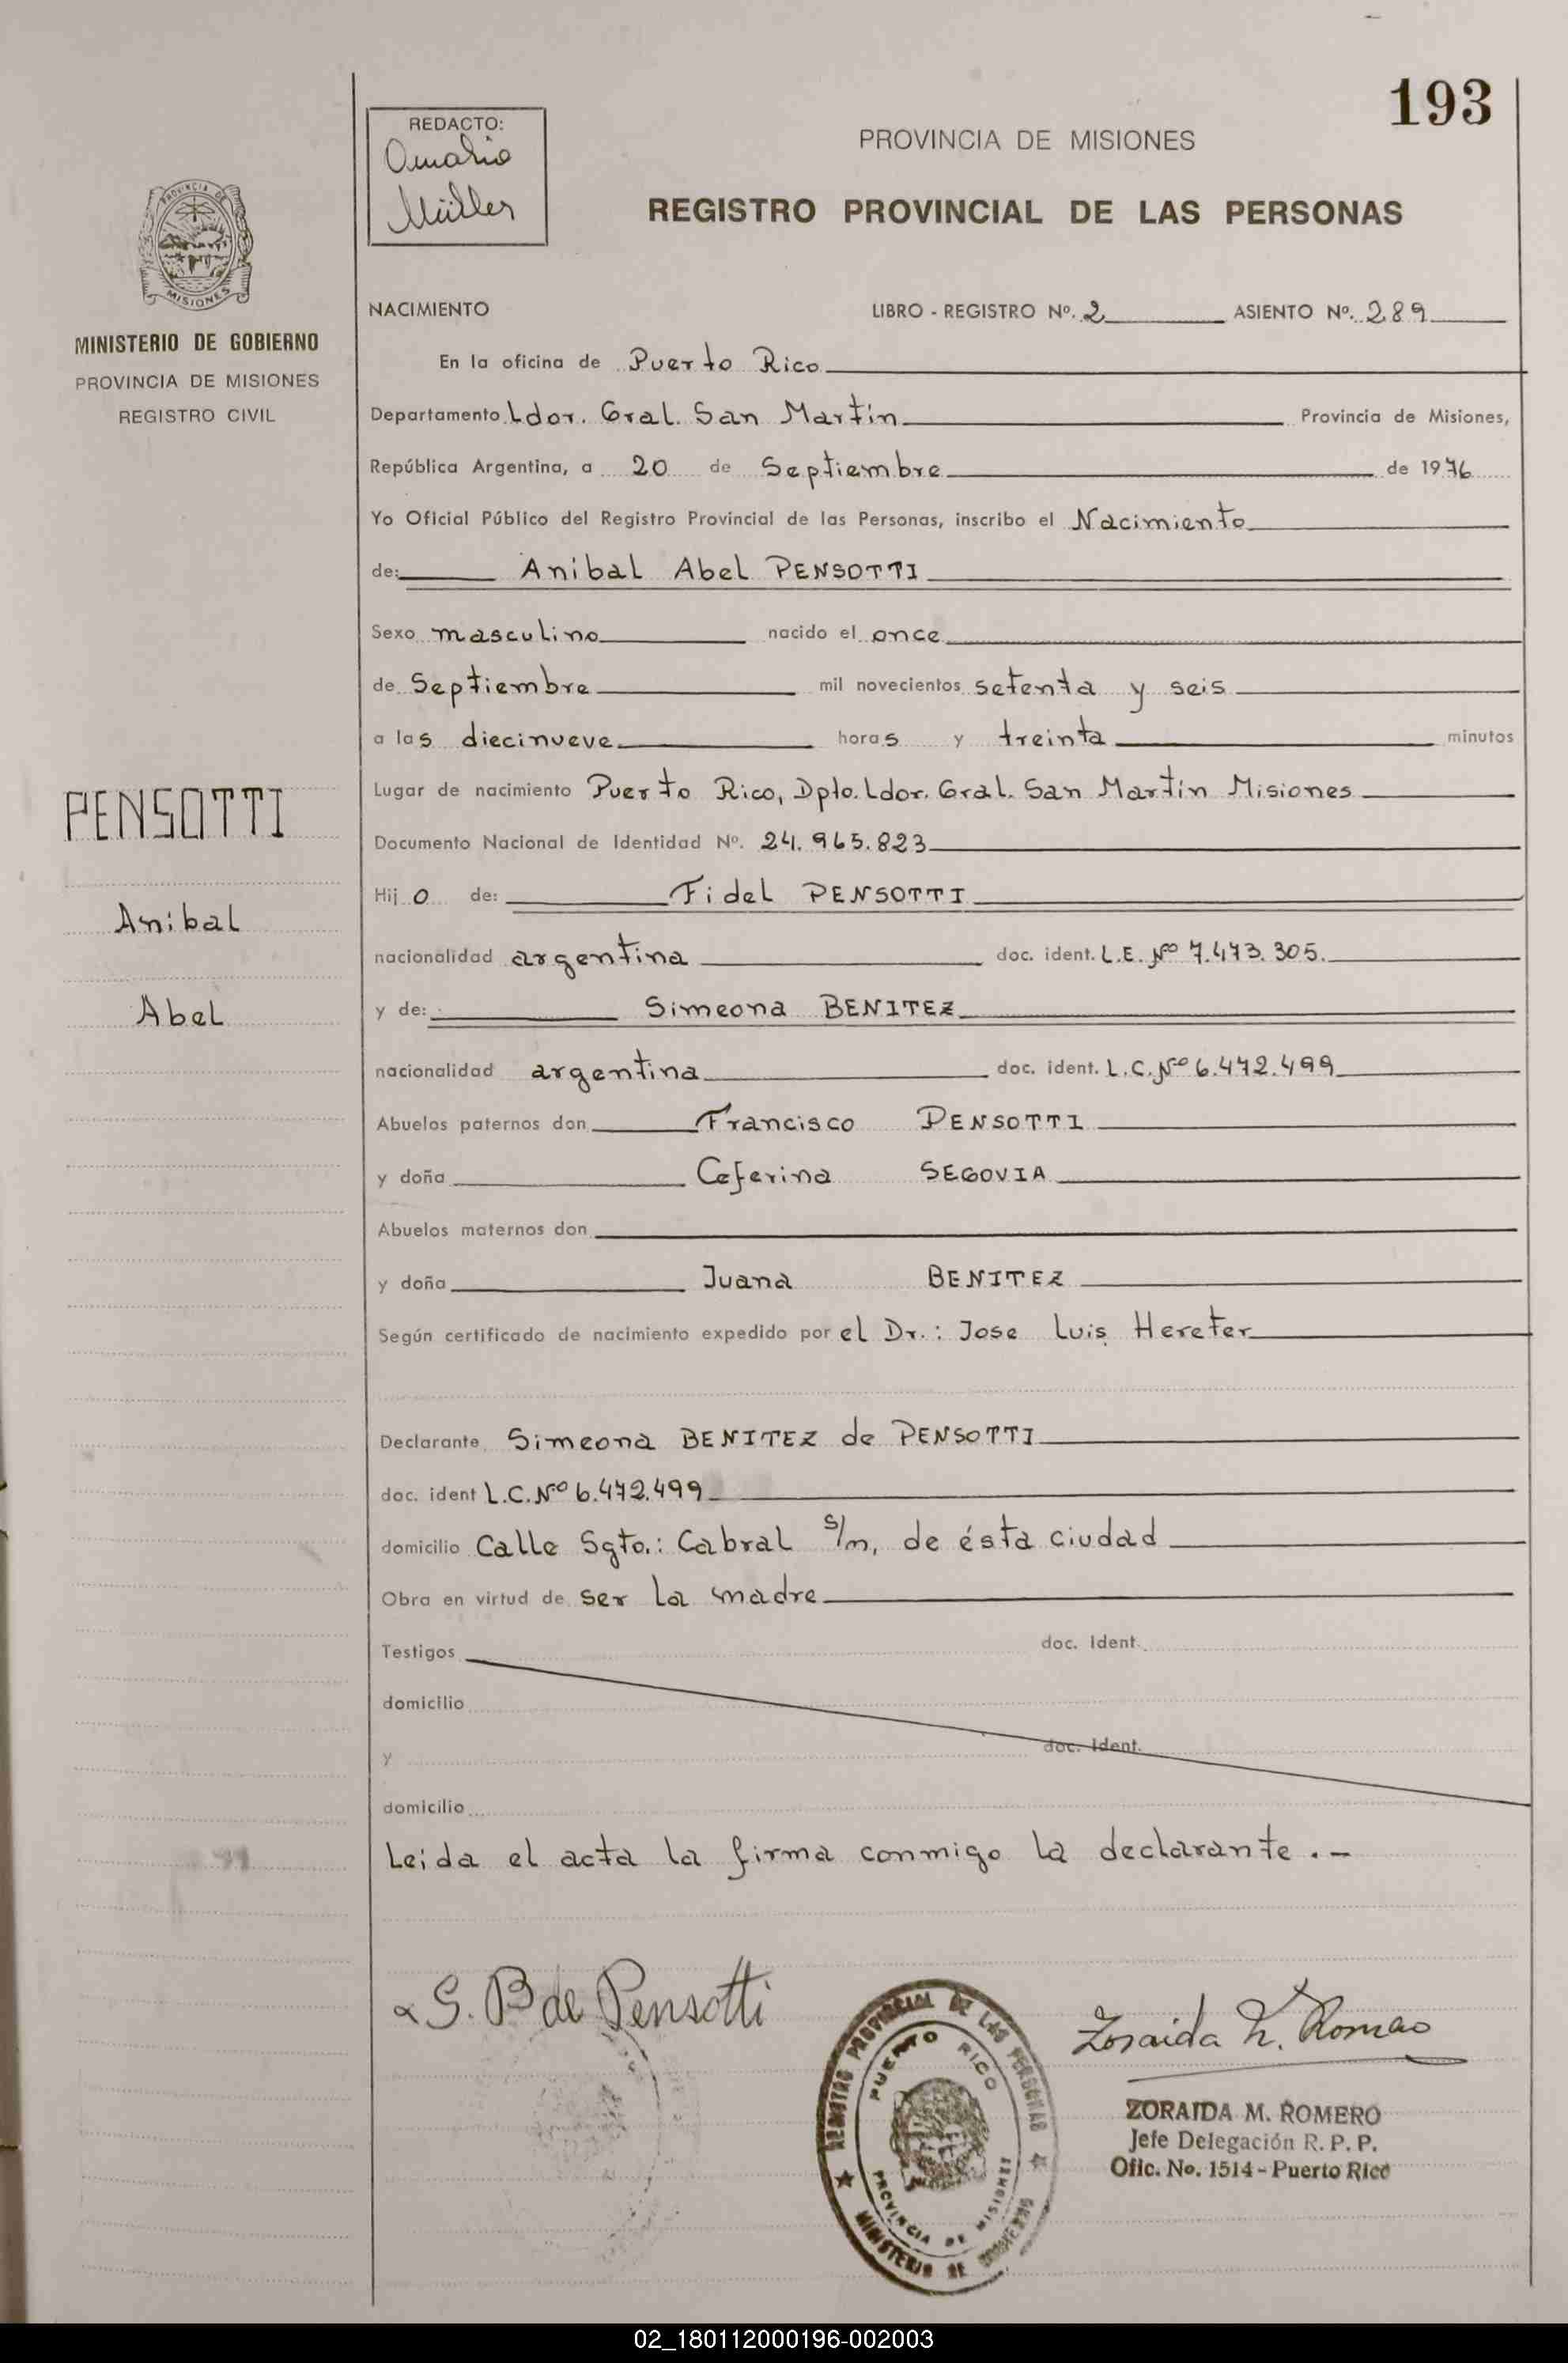 193
REDACTO:
Müller
PROVINCIA DE MISIONES
REGISTRO PROVINCIAL DE LAS PERSONAS
PROVINCIA DE
MISIONES
MINISTERIO DE GOBIERNO
PROVINCIA DE MISIONES
REGISTRO CIVIL
NACIMIENTO LIBRO - REGISTRO Nº. 2 ASIENTO Nº. 289
En la oficina de Puerto Rico
Departamento Ldor. Gral. San Martín Provincia de Misiones,
República Argentina, a 20 de Septiembre de 1976
Yo Oficial Público del Registro Provincial de las Personas, inscribo el Nacimiento
de: Anibal Abel PENSOTTI
Sexo masculino nacido el once
de Septiembre mil novecientos setenta y seis
a las diecinueve horas y treinta minutos
Lugar de nacimiento Puerto Rico, Dpto. Ldor. Gral. San Martín Misiones
Documento Nacional de Identidad Nº. 24.965.823
Hijo de: Fidel PENSOTTI
nacionalidad argentina doc. ident. L.E. Nº 7.473.305.
y de: Simeona BENITEZ
nacionalidad argentina doc. ident. L.C. Nº 6.472.499
Abuelos paternos don Francisco PENSOTTI
y doña Ceferina SEGOVIA
Abuelos maternos don
y doña Juana BENITEZ
Según certificado de nacimiento expedido por el Dr.: Jose Luis Hereter
Declarante Simeona BENITEZ de PENSOTTI
doc. ident L.C. Nº 6.472.499
domicilio Calle Sgto.: Cabral s/n, de ésta ciudad
Obra en virtud de ser la madre
Testigos doc. Ident.
domicilio
y doc. Ident.
domicilio
Leida el acta la firma conmigo la declarante.-
PENSOTTI
Anibal
Abel
S. B de Pensotti
REGISTRO PROVINCIAL DE LAS PERSONAS
PUERTO RICO
PROVINCIA DE MISIONES
MINISTERIO DE GOBIERNO
Zoraida M. Romero
ZORAIDA M. ROMERO
Jefe Delegación R. P. P.
Ofic. No. 1514 - Puerto Rico
02_180112000196-002003